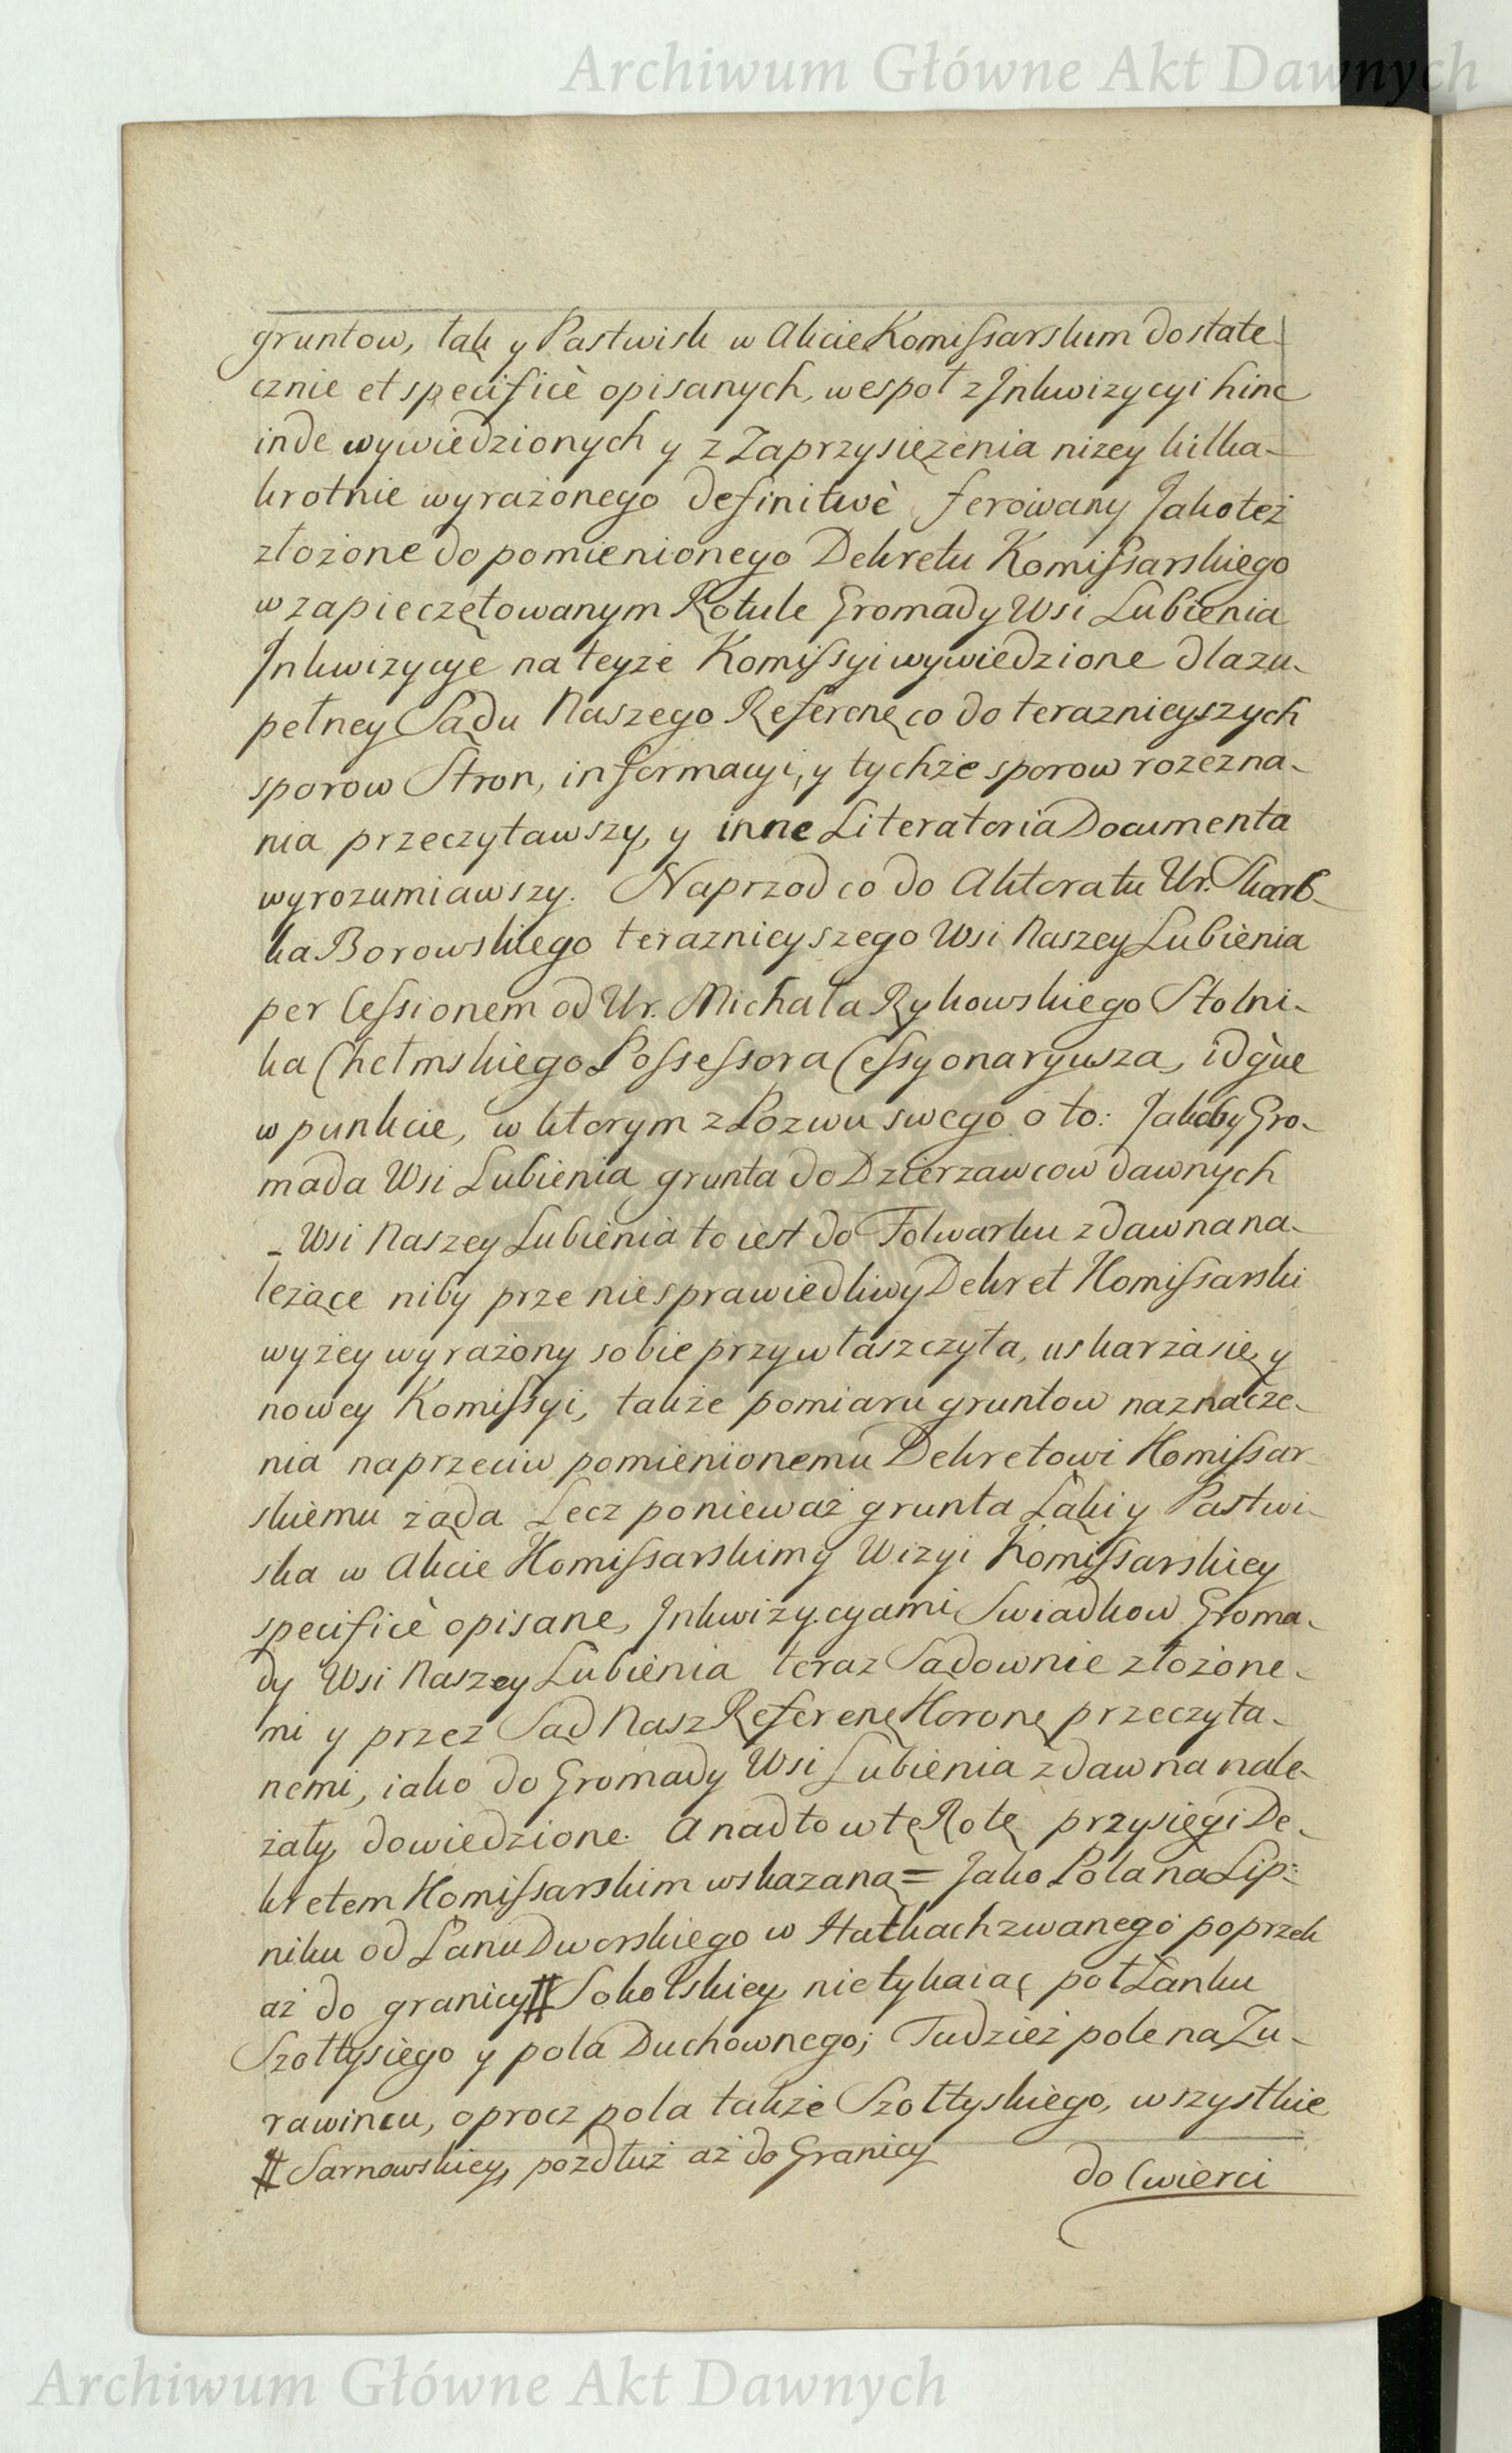 Archiwum Główne Akt Dawnych
gruntow, tak y Pastwisk w Akcie Komissarskim dostate-
cznie et specificè opisanych, wespoł z Inkwizycyi hinc
inde wywiedzionych y z Zaprzysiężenia niżey kilka-
krotnie wyrażonego definitivè ferowany Jako też
złożone do pomienionego Dekretu Komissarskiego
w zapieczętowanym Rotule Gromady Wsi Lubienia
Inkwizycye na teyże Komissyi wywiedzione dla zu-
pełney Sądu Naszego Referenę co do teraznieyszych
sporow Stron, informacyi, y tychże sporow rozezna-
nia przeczytawszy, y inne Literatoria Documenta
wyrozumiawszy. Naprzod co do Aktoratu Ur. Skarb-
ka Borowskiego teraznieyszego Wsi Naszey Lubienia
per Cessionem od Ur. Michała Rykowskiego Stolni-
ka Chełmskiego Possessora Cessyonaryusza, idque
w punkcie, w ktorym z Pozwu swego o to: Jakoby Gro-
mada Wsi Lubienia grunta do Dzierzawcow dawnych
- Wsi Naszey Lubienia to iest do Folwarku zdawna na-
leżące niby prze niesprawiedliwy Dekret Komissarski
wyżey wyrażony sobie przywłaszczyła, uskarża się y
nowey Komissyi, także pomiaru gruntow naznacze-
nia naprzeciw pomienionemu Dekretowi Komissar-
skiemu żąda Lecz ponieważ grunta Łąki y Pastwi-
ska w Akcie Komissarskim y Wizyi Komissarskiey
specificè opisane, Inkwizycyami Swiadkow Groma-
dy Wsi Naszey Lubienia teraz Sądownie złożone-
mi y przez Sąd Nasz Referenę Koronę przeczyta-
nemi, iako do Gromady Wsi Lubienia zdawna nale-
żały, dowiedzione. A nadto w tę Rotę przysięgi De-
kretem Komissarskim wskazaną = Jako Pola na Lip-
niku od Łanu Dworskiego w Hatkach zwanego poprzek
aż do granicy # Sokolskiey nietykaiąc poł Łanku
Szołtysiego y pola Duchownego; Tudzież pole na Zu-
rawincu, oprocz pola także Szołtyskiego, wszystkie
# Sarnowskiey, pozdłuż aż do Granicy
do Cwierci
Archiwum Główne Akt Dawnych